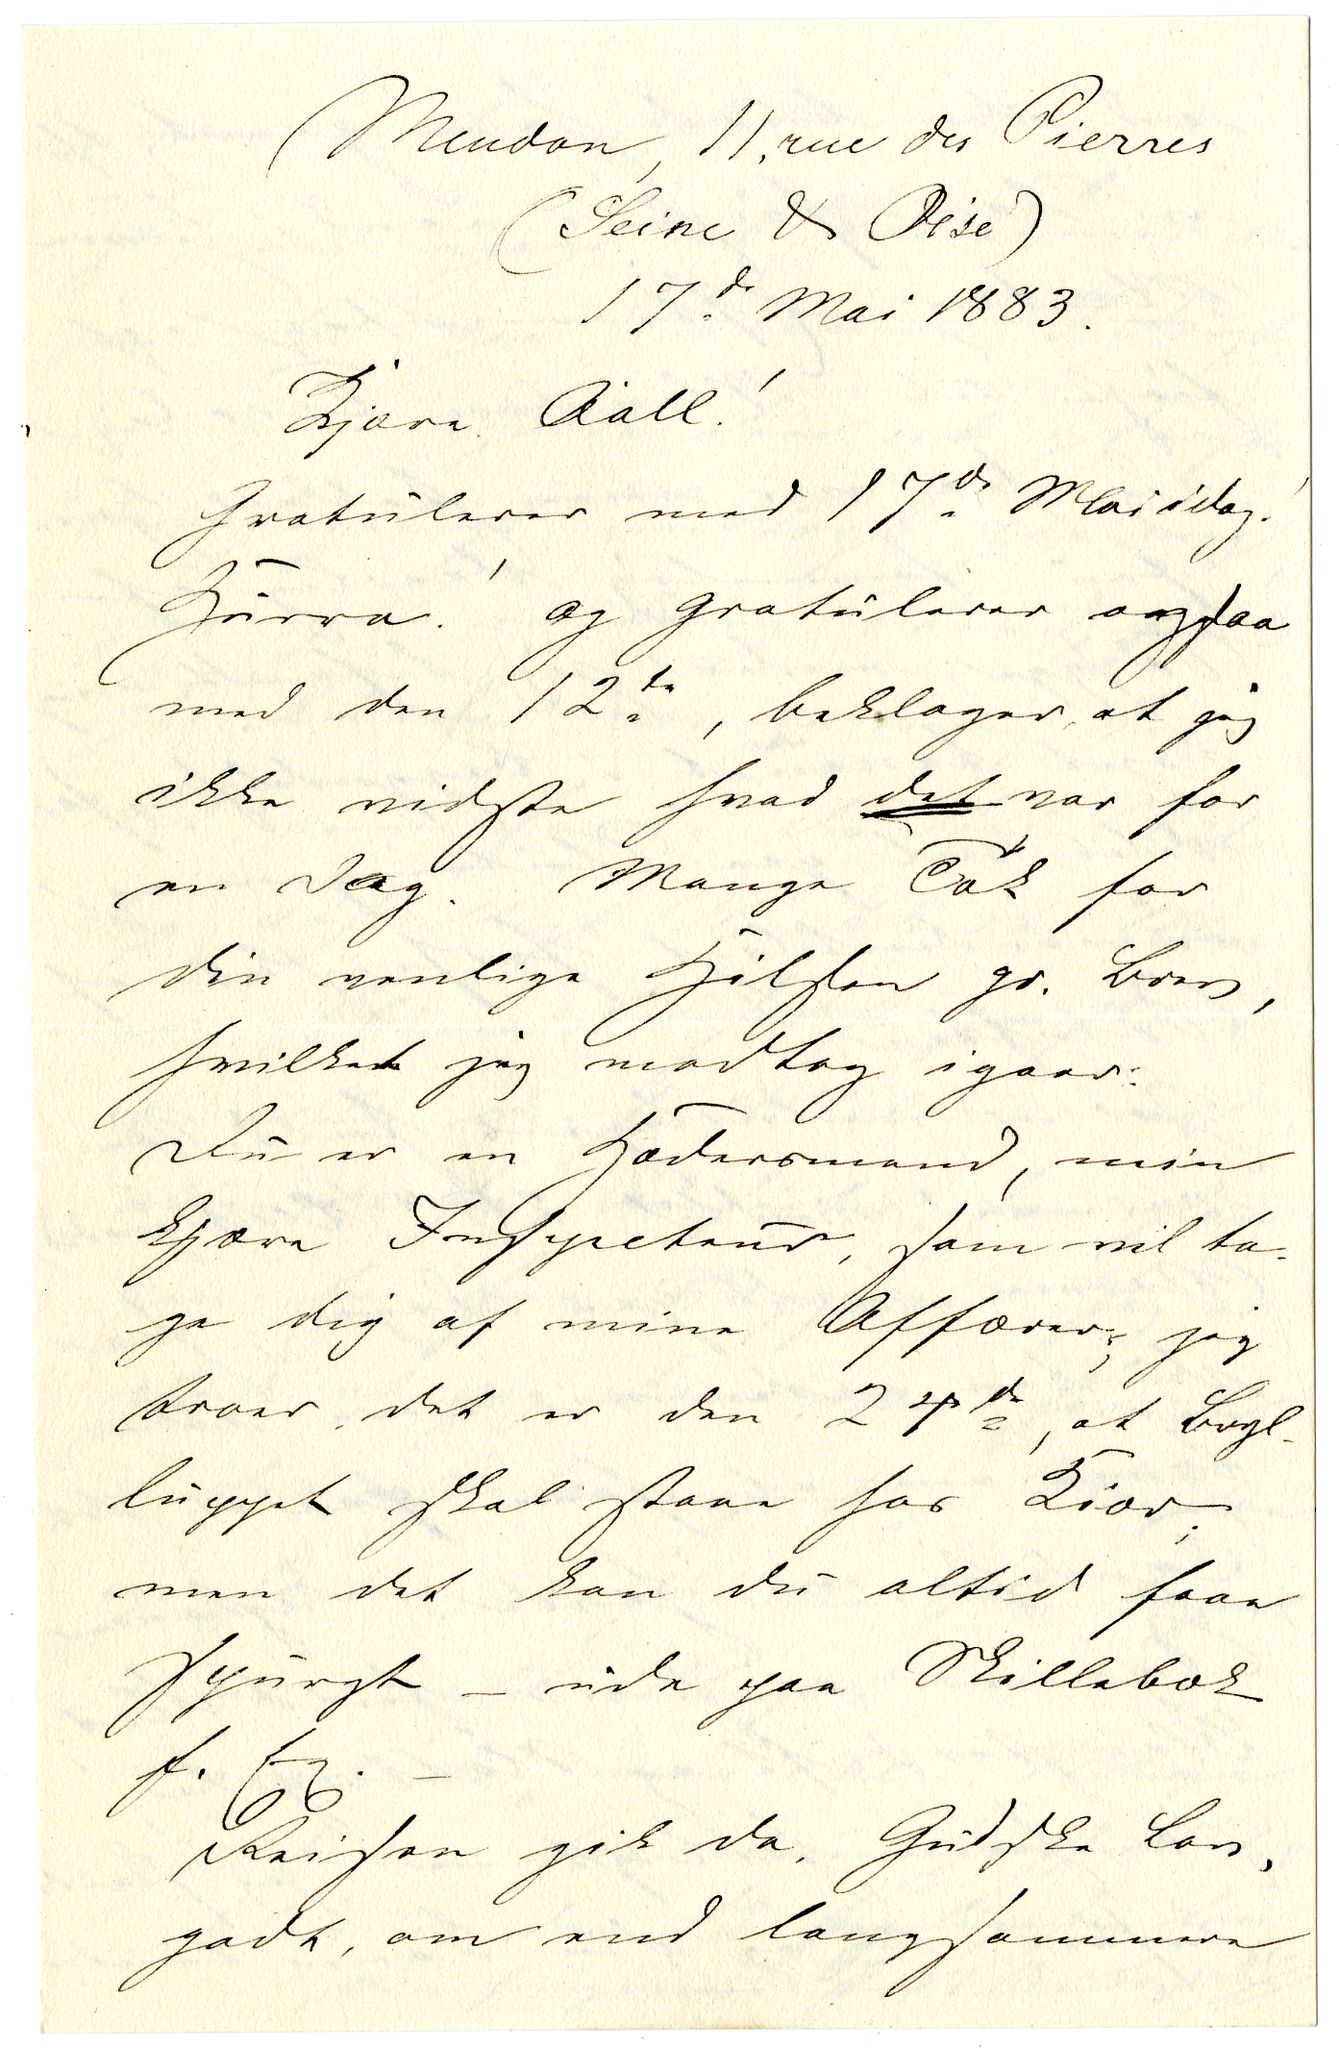 Meudon, 11, rue des Pierres
(Seine & Oise)
17de Mai 1883.
Kjære Aall!
Gratulerer med 17de Mai idag!
Hurra! og gratulerer ogsaa
med den 12te, beklager, at jeg
ikke vidste hvad det var for
en Dag. Mange Tak for
din venlige Hilsen pr. Brev,
hvilket jeg modtog igaar.
Du er en Hædersmand, min
kjære Inspecteur, som vil ta-
ge dig af mine Affærer; jeg
troer, det er den 24de, at Bryl-
luppet skal staae hos Kiær;
men det kan du altid faae
spurgt – ude paa Skillebæk
f. Ex. –
Reisen gik da, Gudske Lov,
godt, om end langsommere